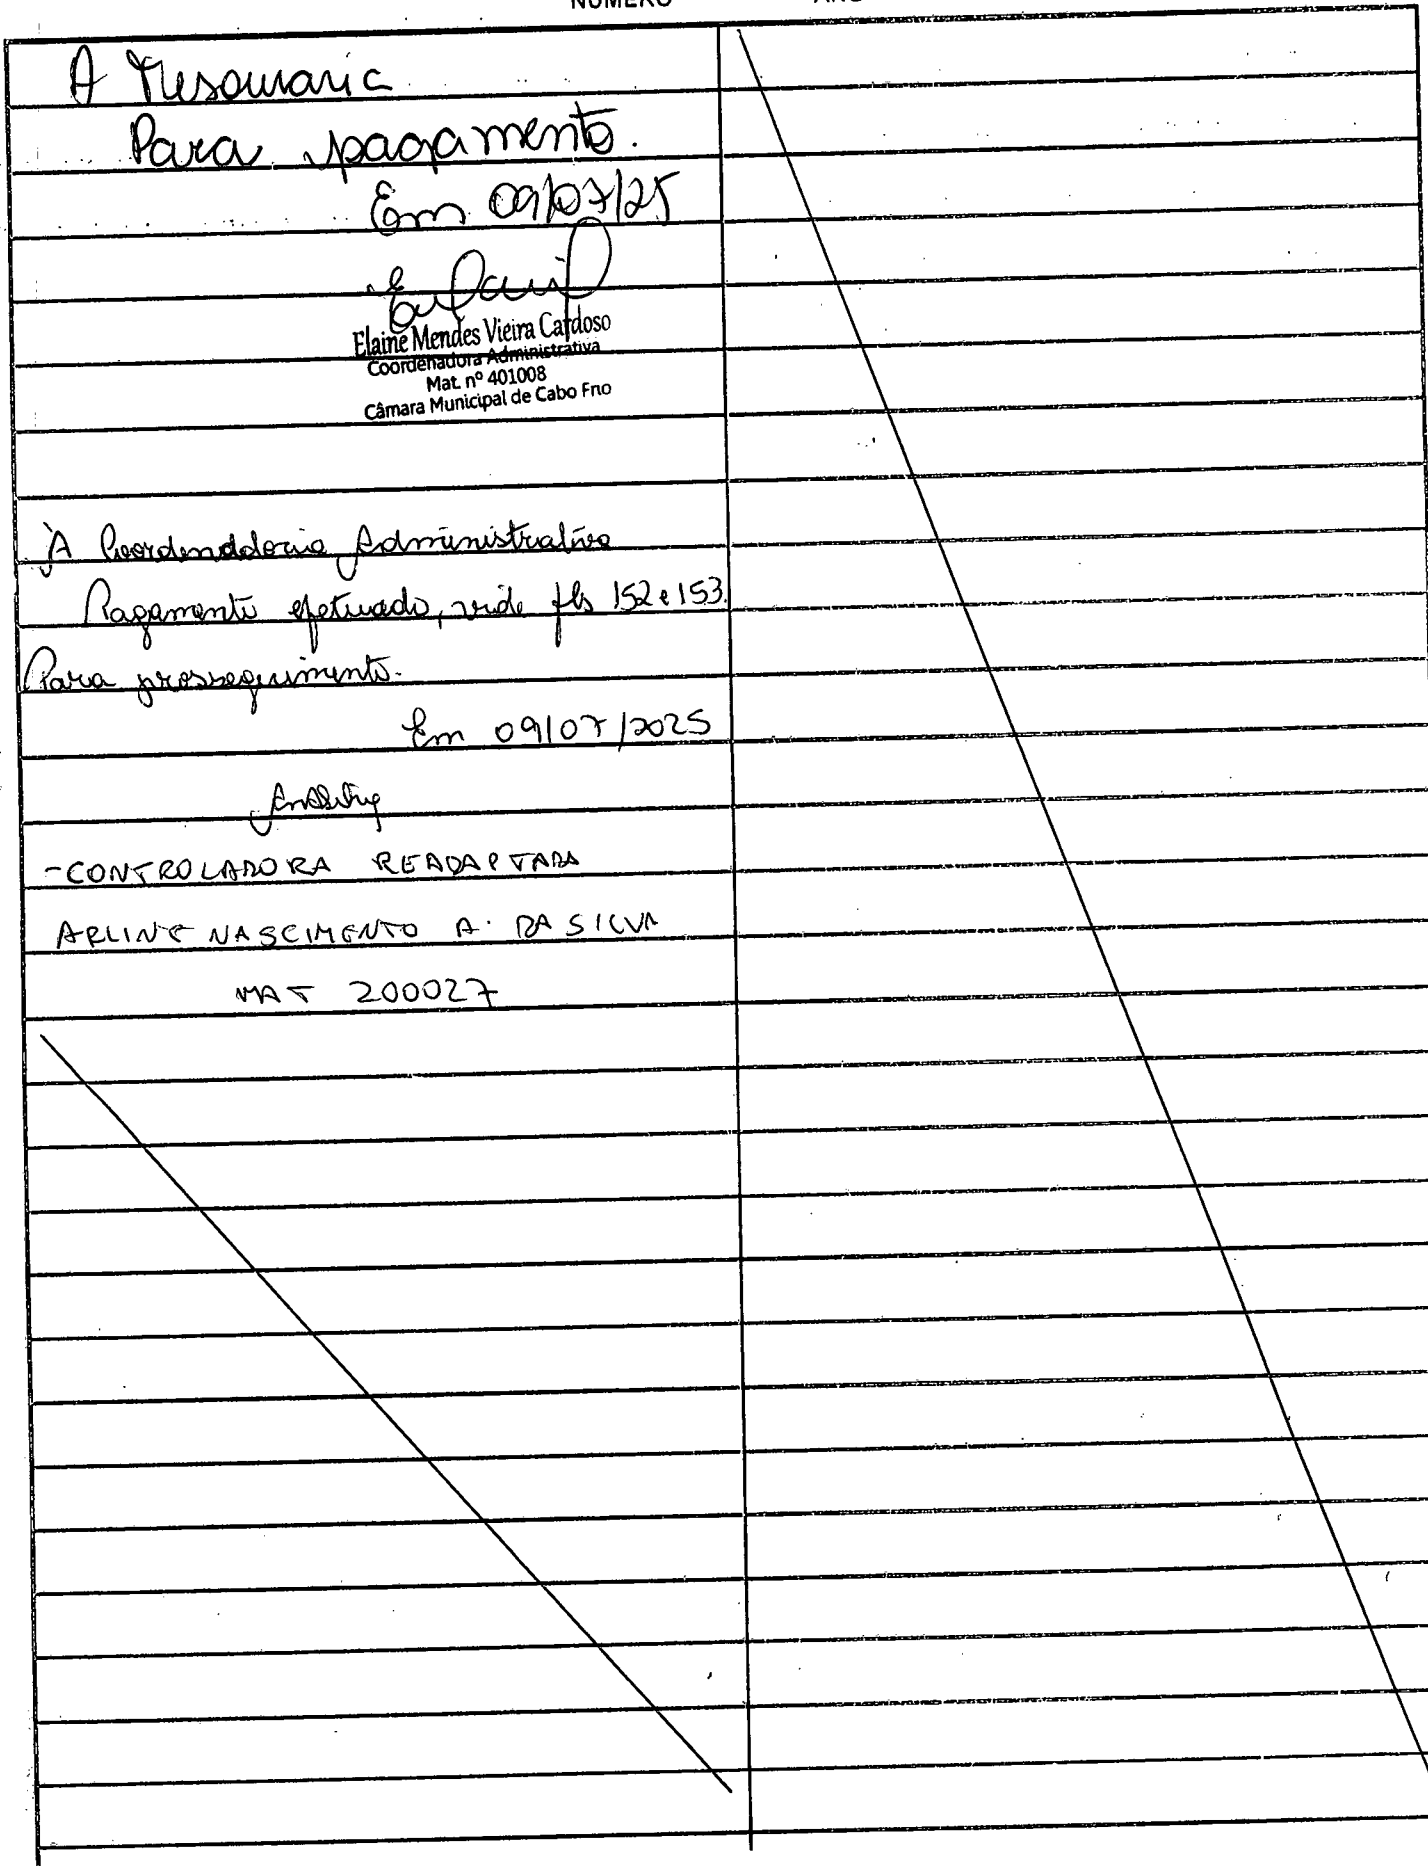 NÚMERO ANO
A Tesouraria
Para pagamento.
Em 09/07/25
Elaine Mendes Vieira Cardoso
Coordenadora Administrativa
Mat. nº 401008
Câmara Municipal de Cabo Frio
À Coordenadoria Administrativa
Pagamento efetuado, vide fls 152 e 153.
Para prosseguimento.
Em 09/07/2025
-CONTROLADORA READAPTADA
ARLINE NASCIMENTO A. DA SILVA
MAT 200027